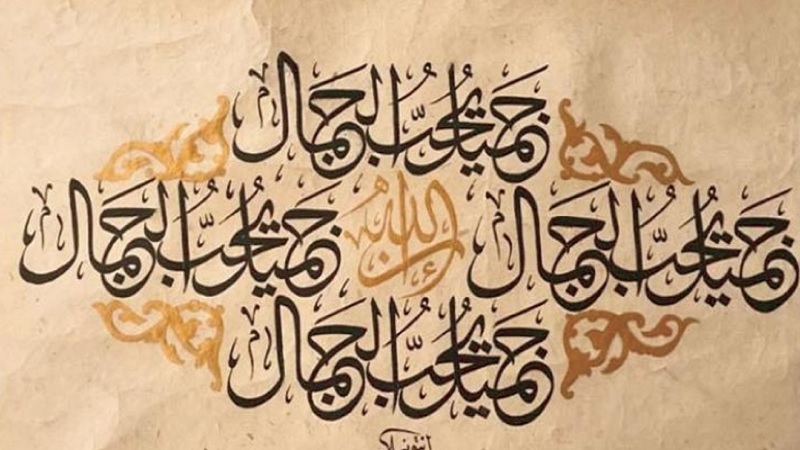 جميل يحبّ الجمال
جميل يحبّ الجمال إن الله جميل يحبّ الجمال
جميل يحبّ الجمال
انتونيلا